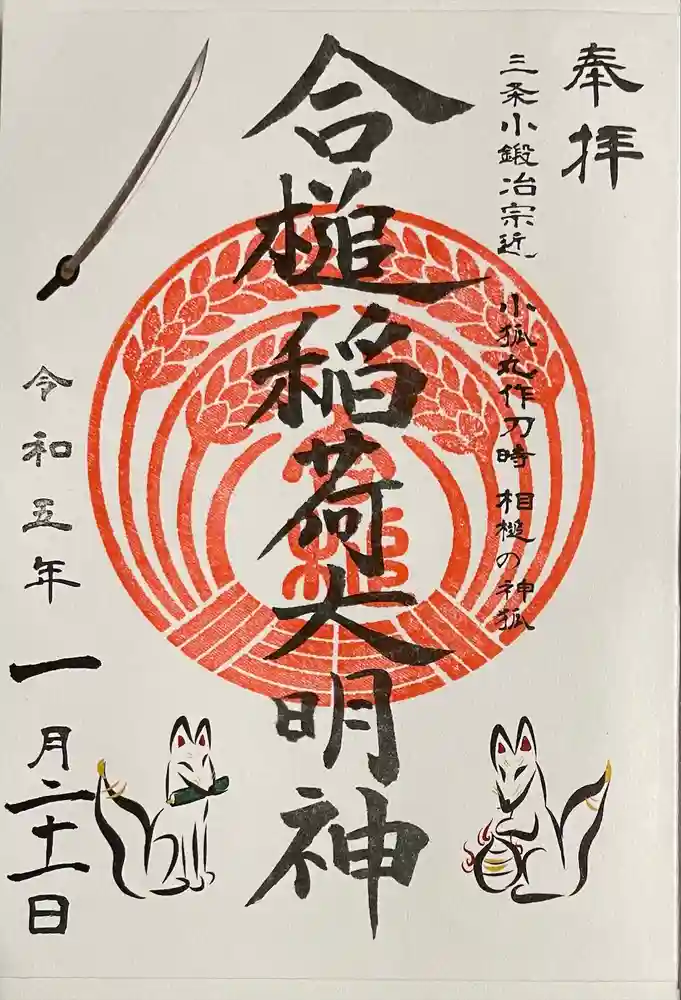 奉拝
三条小鍛冶宗近 小狐丸作刀時 相槌の神狐
合槌稲荷大明神
令和五年
一月二十一日